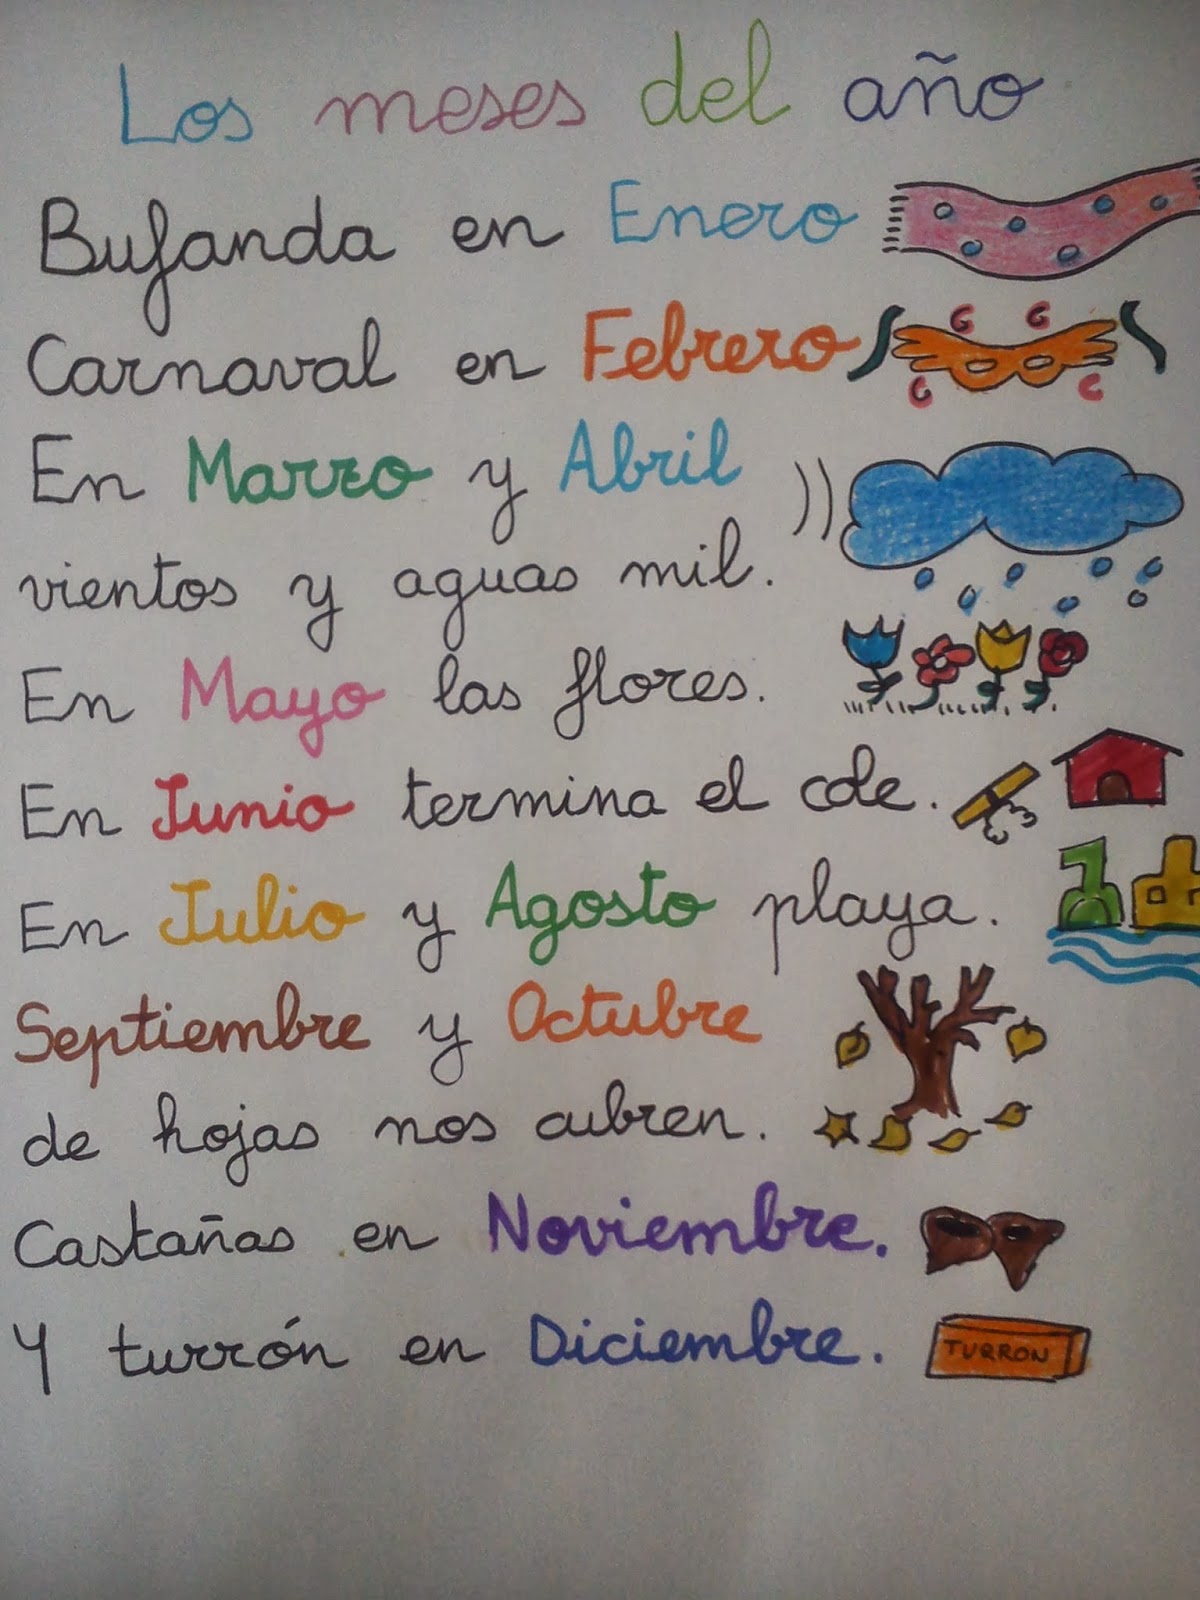 Los meses del año
Bufanda en Enero
Carnaval en Febrero
En Marzo y Abril
vientos y aguas mil.
En Mayo las flores.
En Junio termina el cole.
En Julio y Agosto playa.
Septiembre y Octubre
de hojas nos cubren.
Castañas en Noviembre.
Y turrón en Diciembre.
TURRON